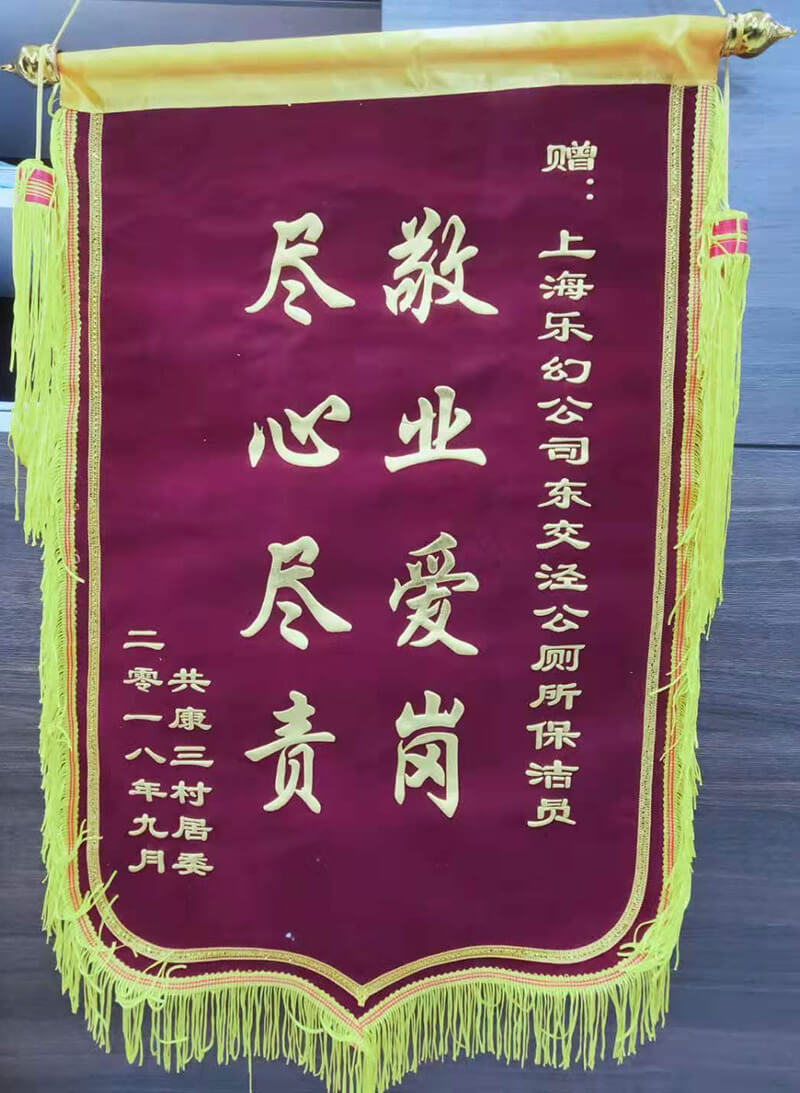 赠：上海乐幻公司东交泾公厕所保洁员
敬业爱岗
尽心尽责
共康三村居委
二零一八年九月